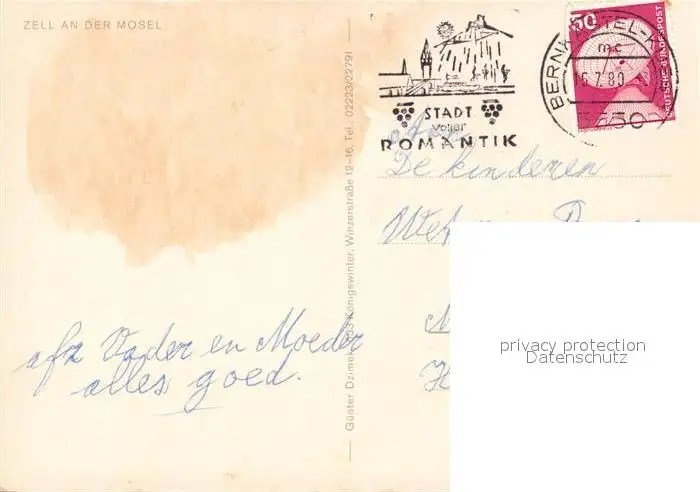 ZELL AN DER MOSEL
STADT
voller
ROMANTIK
BERNKASTEL-K
mc
80
50
DEUTSCHE BUNDESPOST
Aan
De kinderen
privacy protection
Datenschutz
afz Vader en Moeder
alles goed.
Günter Dzimek, 533 Königswinter, Winzerstraße 12-16, Tel.: 02223/22791